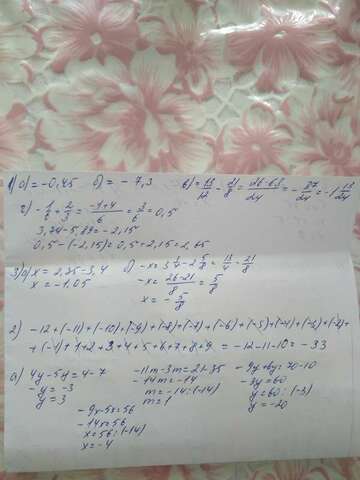 1) а) = -0,45 б) = -7,3 в) = 13/12 - 21/8 = 26-63/24 = - 37/24 = -1 13/24
г) - 1/6 + 2/3 = -1+4/6 = 3/6 = 0,5
3,24-5,39 = -2,15
0,5-(-2,15) = 0,5+2,15 = 2,65
3) а) x = 2,35-3,4 б) -x = 3 1/4 - 2 5/8 = 13/4 - 21/8
x = -1,05 -x = 26-21/8 = 5/8
x = - 5/8
2) -12+(-11)+(-10)+(-9)+(-8)+(-7)+(-6)+(-5)+(-4)+(-3)+(-2)+
+(-1)+1+2+3+4+5+6+7+8+9 = -12-11-10 = -33
а) 4y-5y = 4-7 -11m-3m = 21-35 -9y+6y = 70-10
-y = -3 -14m = -14 -3y = 60
y = 3 m = -14:(-14) y = 60:(-3)
m = 1 y = -20
-9x-5x = 56
-14x = 56
x = 56:(-14)
x = -4